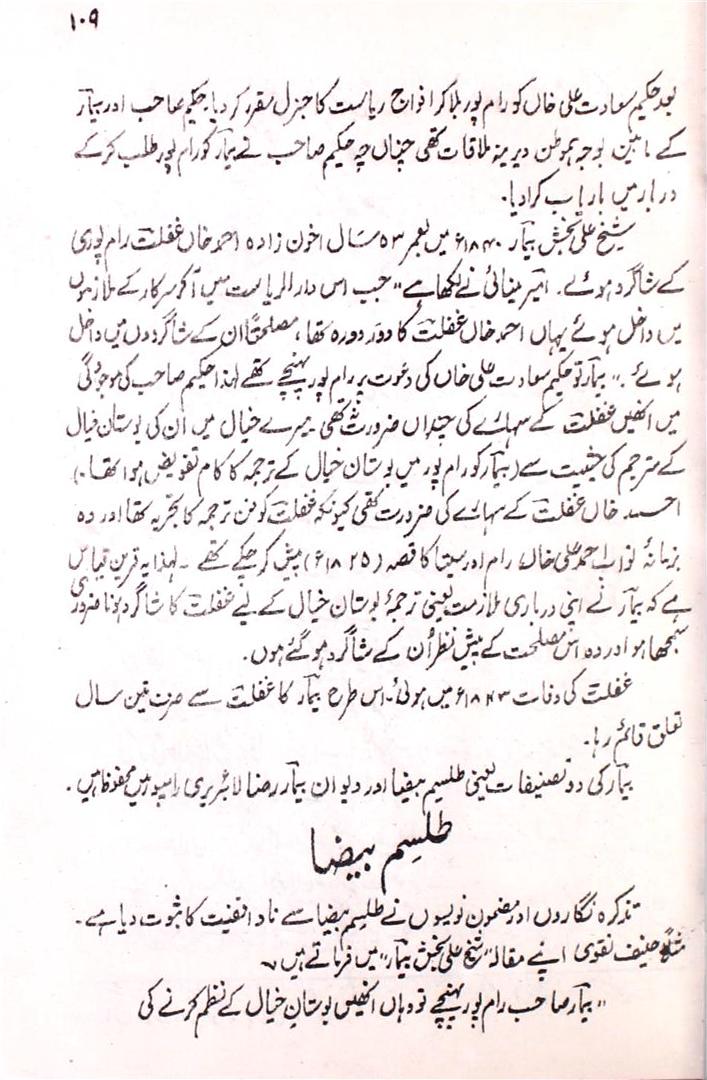 ۱۰۹
بعد حکیم سعادت علی خاں کو رام پور بلا کر افواج ریاست کا جنرل مقرر کر دیا۔ حکیم صاحب اور بیمار
کے مابین بوجہ ہموطن دیرینہ ملاقات تھی چناں چہ حکیم صاحب نے بیمار کو رام پور طلب کر کے
دربار میں باریاب کرا دیا۔
شیخ علی بخش بیمار ۱۸۴۰ء میں بعمر ۵۳ سال اخون زادہ احمد خاں غفلت رام پوری
کے شاگرد ہوئے۔ امیر مینائی نے لکھا ہے "جب اس دار الریاست میں آکر سرکار کے ملازموں
میں داخل ہوئے یہاں احمد خاں غفلت کا دور دورہ تھا، مصلحتاً ان کے شاگردوں میں داخل
ہوئے۔" بیمار تو حکیم سعادت علی خاں کی دعوت پر رام پور پہنچے تھے لہٰذا حکیم صاحب کی موجودگی
میں انھیں غفلت کے سہارے کی چنداں ضرورت نہ تھی۔ میرے خیال میں ان کی بوستان خیال
کے مترجم کی حیثیت سے (بیمار کو رام پور میں بوستان خیال کے ترجمہ کا کام تفویض ہوا تھا۔)
احمد خاں غفلت کے سہارے کی ضرورت تھی کیونکہ غفلت کو فن ترجمہ کا تجربہ تھا اور وہ
بزمانۂ نواب احمد علی خاں رام اور سیتا کا قصہ (۱۸۲۵ء) پیش کر چکے تھے۔ لہٰذا یہ قرین قیاس
ہے کہ بیمار نے اپنی درباری ملازمت یعنی ترجمۂ بوستان خیال کے لیے غفلت کا شاگرد ہونا ضروری
سمجھا ہو اور وہ اس مصلحت کے پیش نظر اُن کے شاگرد ہو گئے ہوں۔
غفلت کی وفات ۱۸۴۳ء میں ہوئی۔ اس طرح بیمار کا غفلت سے صرف تین سال
تعلق قائم رہا۔
بیمار کی دو تصنیفات یعنی طلسم بیضا اور دیوان بیمار رضا لائبریری رامپور میں محفوظ ہیں۔
طلسم بیضا
تذکرہ نگاروں اور مضمون نویسوں نے طلسم بیضا سے ناواقفیت کا ثبوت دیا ہے۔
مثلاً حنیف نقوی اپنے مقالہ "شیخ علی بخش بیمار" میں فرماتے ہیں
"بیمار صاحب رام پور پہنچے تو وہاں انھیں بوستان خیال کے نظم کرنے کی